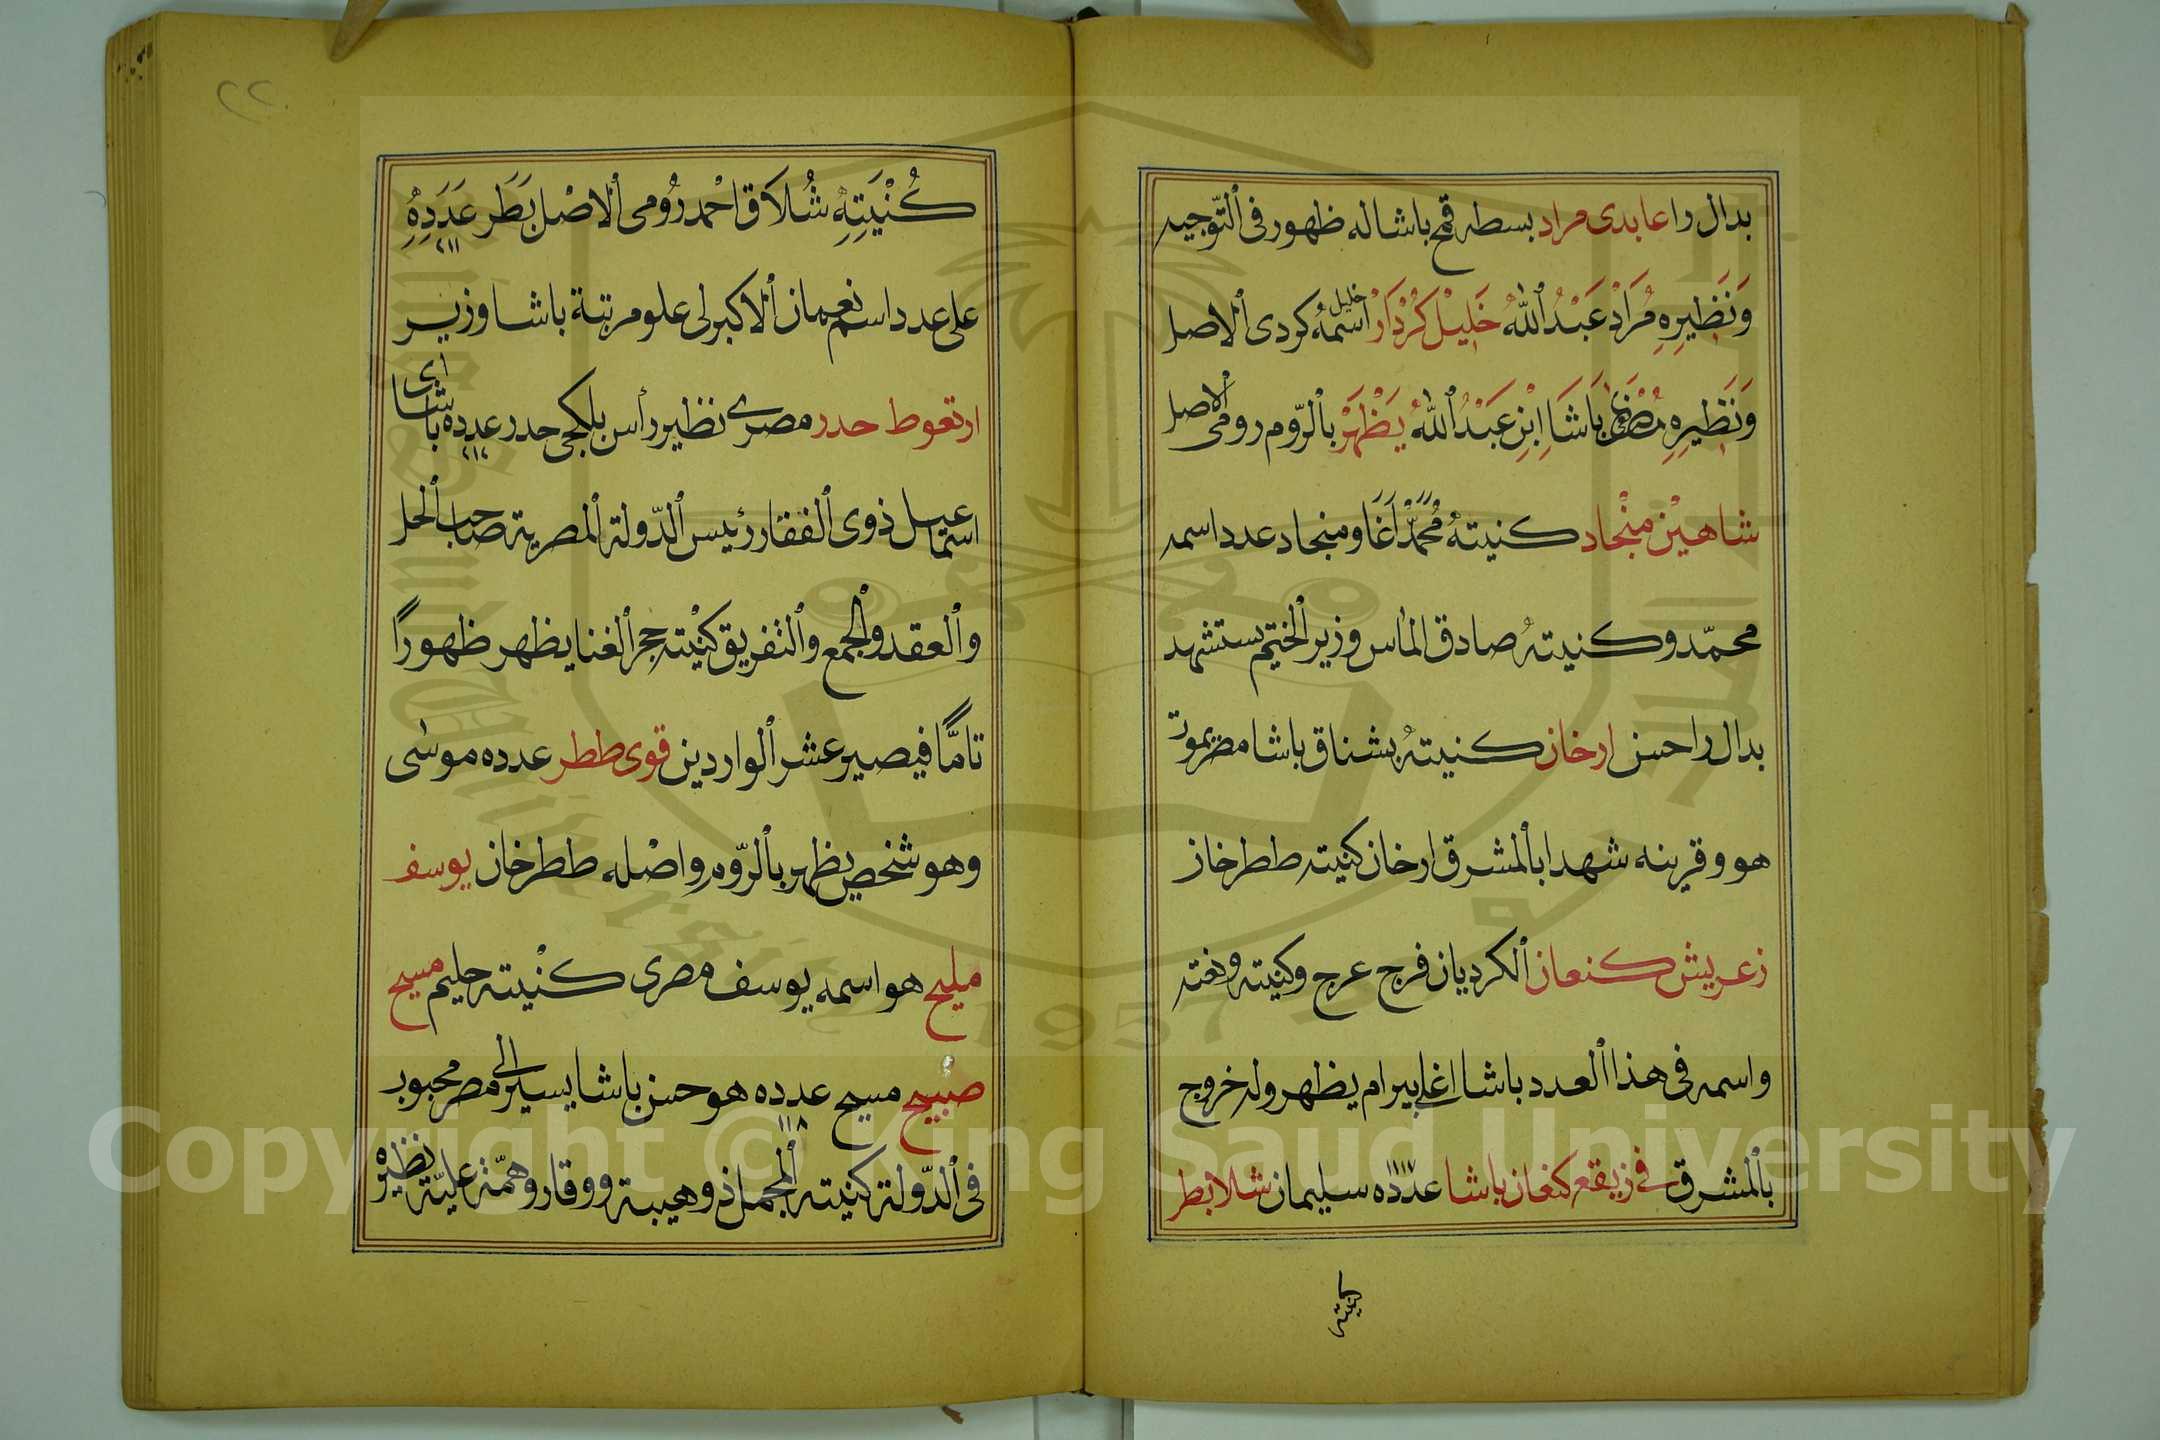 بدال را عابدى مراد بسطه قمح باشا له ظهور فى التّوجيه
وَنَظِيرِهِ مُرَادْ عَبْدُ اللهُ خَلِيْل كُرْدَارْ اسمهُ خليل كردى الاصل
وَنَظِيرِهِ بَاشَا اِبْنِ عَبْدُ اللهُ يَظْهَرْ بالرّوم رومى الاصل
شاهيْن منْجاد كنيتهُ مُحَمَّدْ اَغَا ومنجاد عدد اسمه
محمّد وكنيتهُ صادق الماس وزير الختيم يستشهد
بدال را حسن ارخان كنيتهُ بشناق باشا مصر يموت
هو وقرينه شهدا بالمشرق ارخان كنيته ططرخان
زعريش كنعان الكرديان فرج عرج وكنيته
واسمه فى هذا العدد باشا اغلى بيرام يظهر وله خروج
بالمشرق فى زيقع كنعان باشا عدده ١١١٧ سليمان شلابطر
كنيته
٢٢
كُنْيَتِهِ شُلَاق احْمد رُومى الاصْل بَطَر عَدَدِهِ ٢١١
على عدد اسم نعمان الاكبرلى علو مرتبة باشا وزير
ارتعوط حدر مصرى نظير رأس بلكجى حدر عدده ٢١٢ اى باشا
اسماعيل ذوى الفقار رئيس الدّولة المصرية صاحب الحل
والعقد والجمع والتفريق كنيته حجر الغنا يظهر ظهورًا
تامًّا فيصير عشر الواردين قوى ططر عدده موسى
وهو شخص يظهر بالرّوم واصْله ططرخان يوسف
مليح هو اسمه يوسف مصرى كنْيته حليم مسيح
صبيح مسيح عدده ١١٨ هو حسن باشا يسير الى مصر محبوب
فى الدّولة كنيته المجمل ذو هيبة ووقار وهمّة عليّة نظيره
Copyright © King Saud University
King Saud University
1957